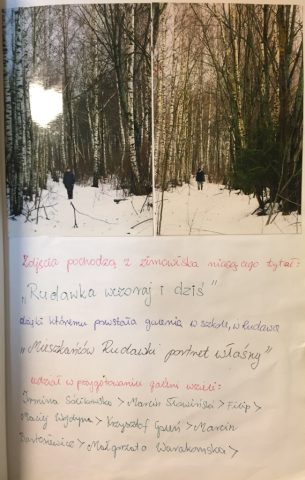 Zdjęcia pochodzą z zimowiska mającego tytuł:
„Rudawka wczoraj i dziś"
dzięki któremu powstała galeria w szkole, w Rudawce
„Mieszkańców Rudawki portret własny"
udział w przygotowaniu galerii wzięli:
Marcin Słowiński > Filip >
Maciej > Krzysztof > Marcin
> Małgorzata >